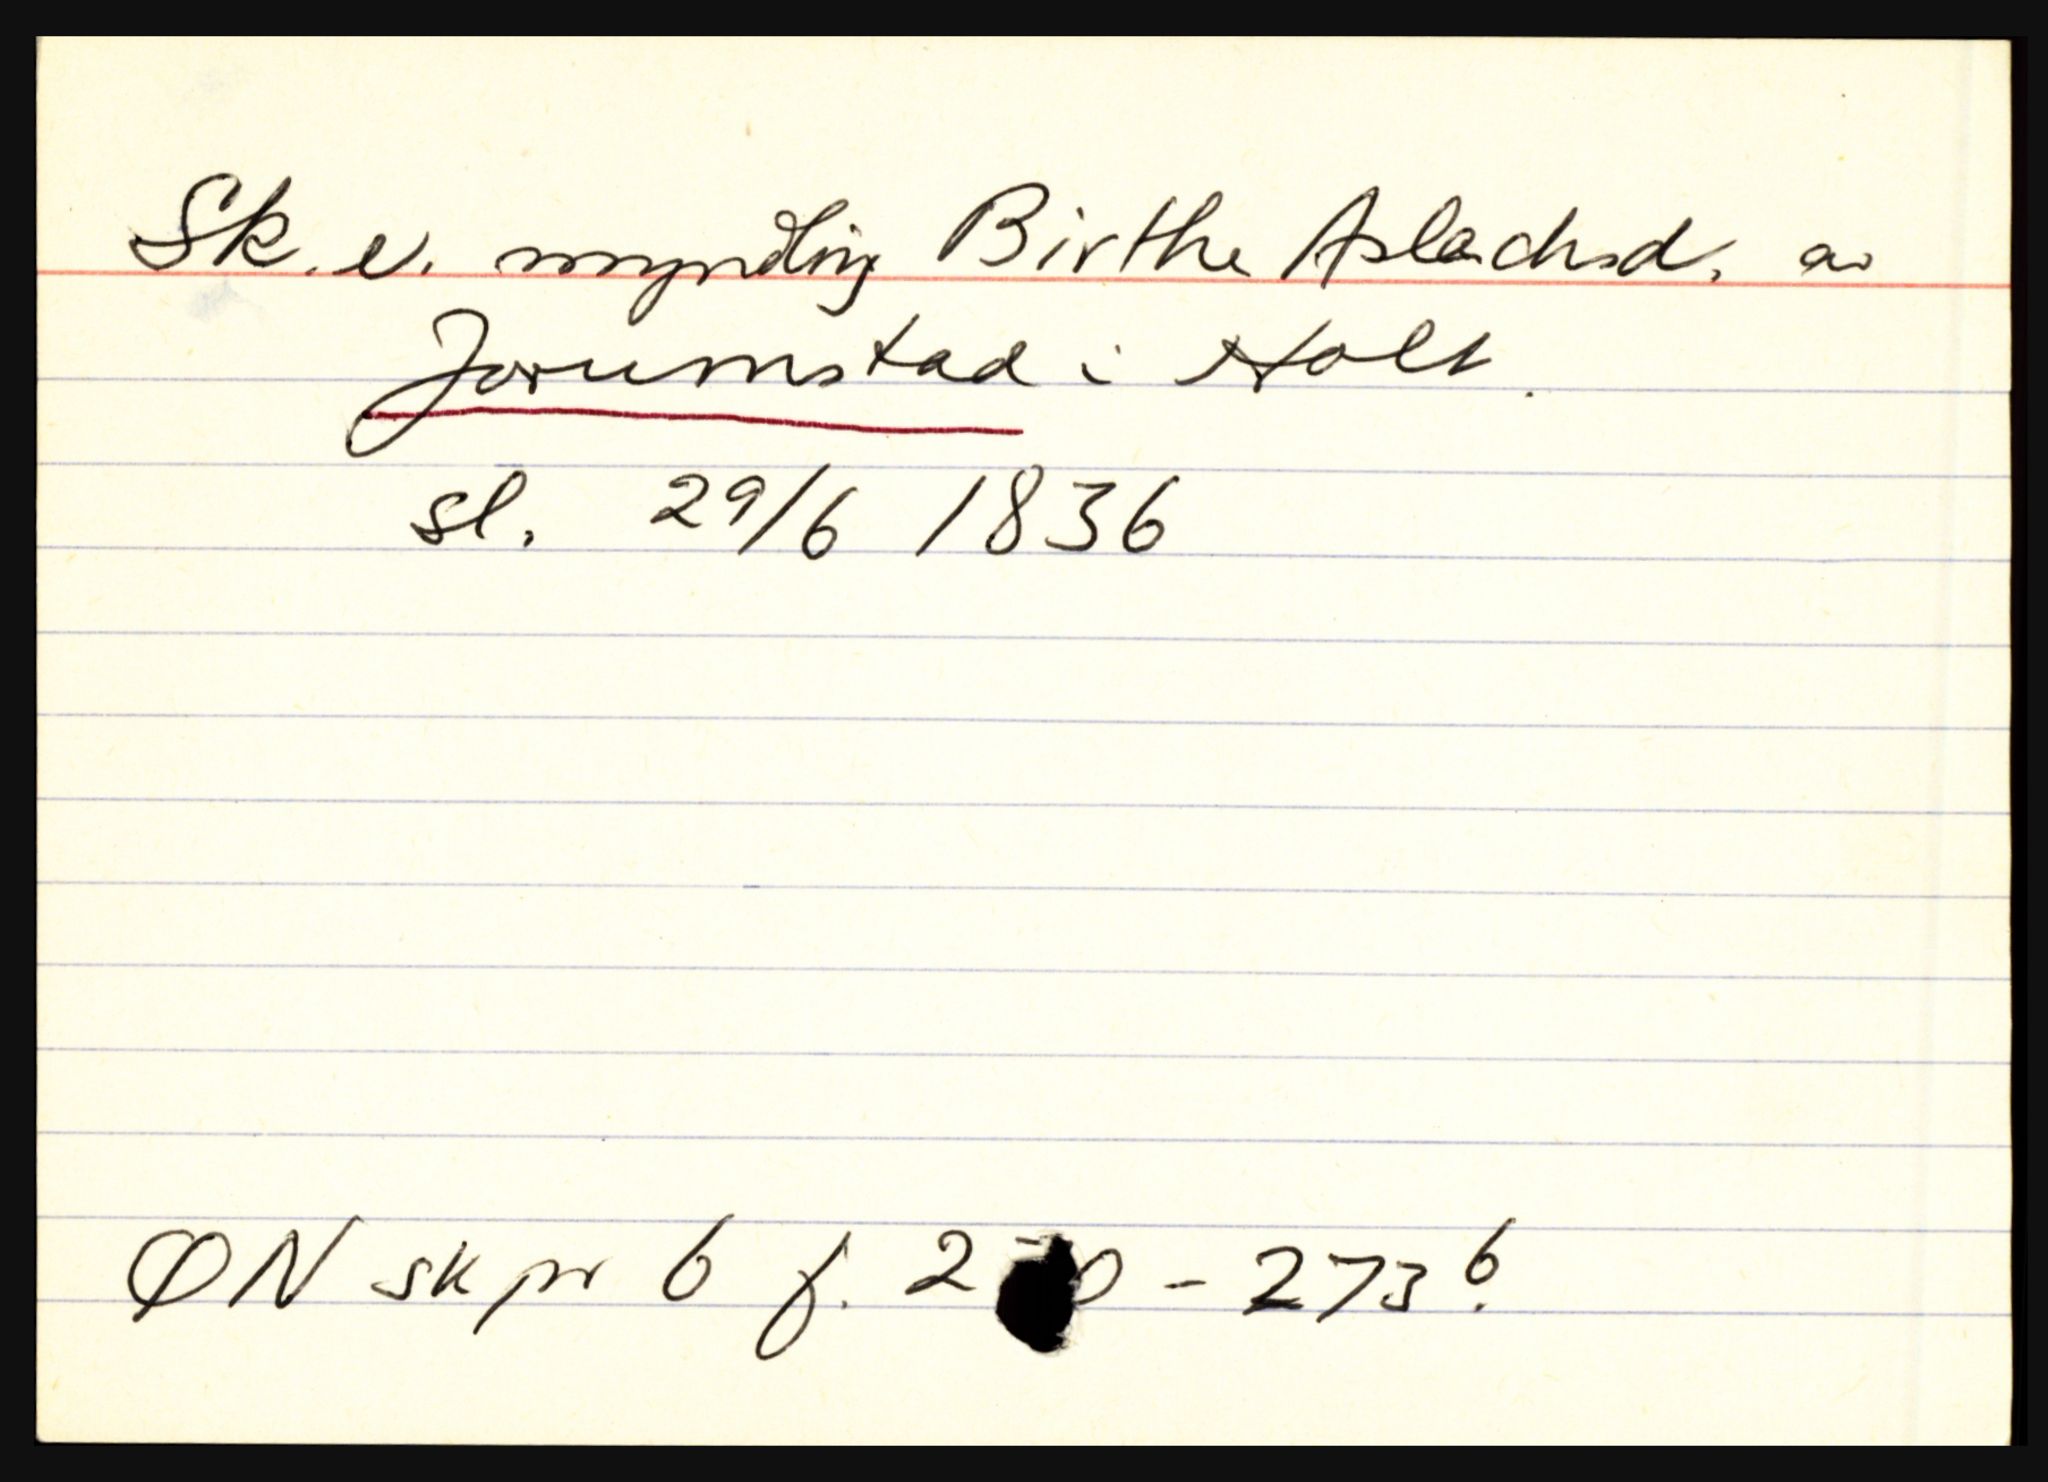 Sk. e. myndling Birthe Aslachsd. av
Jorumstad i Holt.
sl. 29/6 1836
ØN sk pr 6 f. 270 - 273 b.